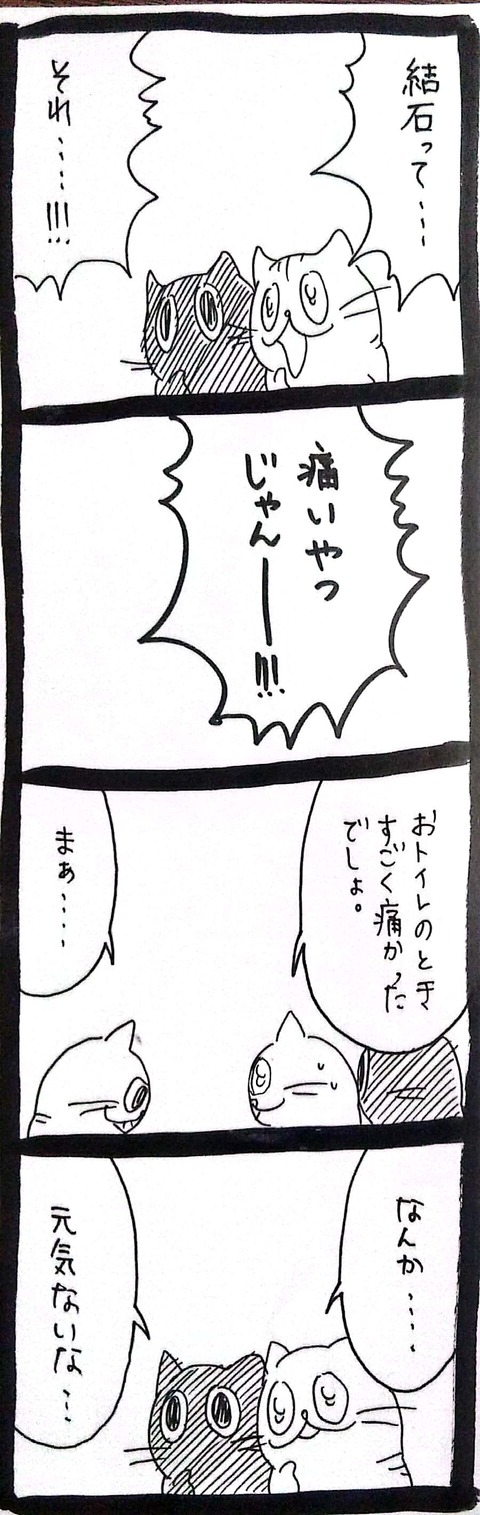 結石って…
それ……!!!
痛いやつ
じゃんーー!!!
おトイレのとき
すごく痛かった
でしょ。
まぁ……
なんか……
元気ないな…